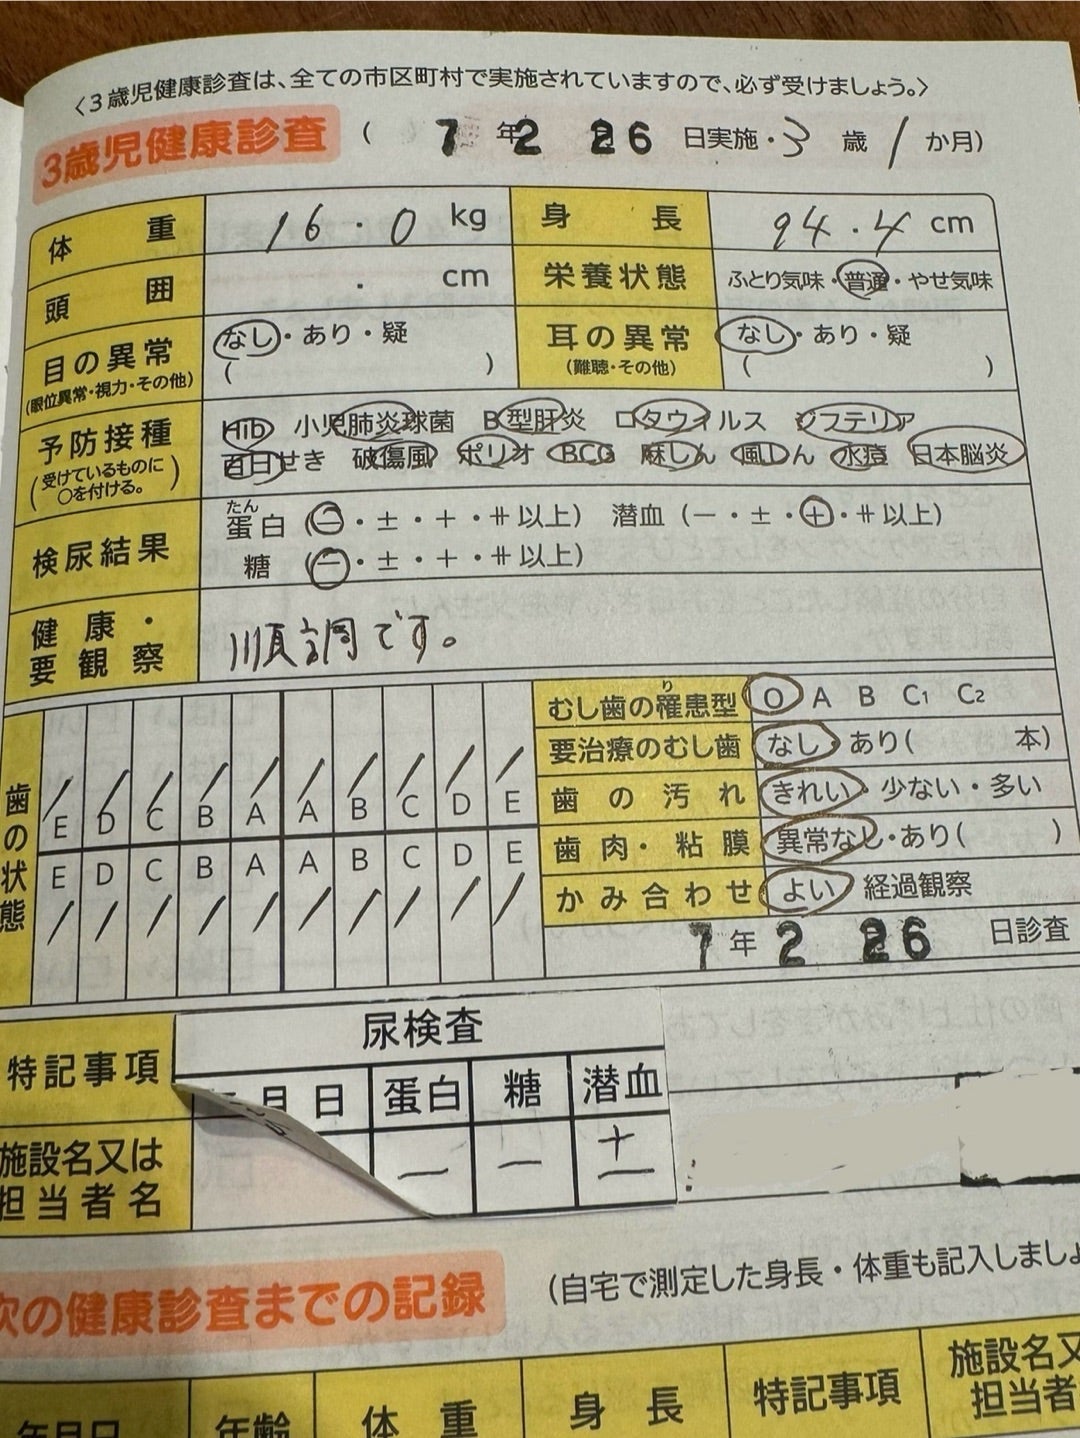 〈3歳児健康診査は、全ての市区町村で実施されていますので、必ず受けましょう。〉
3歳児健康診査 ( 7年2月26日実施・3歳1か月)
体重 16.0kg 身長 94.4cm
頭囲 . cm 栄養状態 ふとり気味・普通・やせ気味
目の異常 なし・あり・疑 耳の異常 なし・あり・疑
(眼位異常・視力・その他) ( ) (難聴・その他) ( )
予防接種 Hib 小児肺炎球菌 B型肝炎 ロタウイルス ジフテリア
(受けているものに○を付ける。) 百日せき 破傷風 ポリオ BCG 麻しん 風しん 水痘 日本脳炎
検尿結果 蛋白(たん) (－・±・＋・⧺以上) 潜血 (－・±・＋・⧺以上)
糖 (－・±・＋・⧺以上)
健康・要観察 順調です。
歯の状態
/ / / / / / / / / /
E D C B A A B C D E
E D C B A A B C D E
/ / / / / / / / / /
むし歯の罹(り)患型 O A B C₁ C₂
要治療のむし歯 なし・あり( 本)
歯の汚れ きれい・少ない・多い
歯肉・粘膜 異常なし・あり( )
かみ合わせ よい・経過観察
7年2月26日診査
特記事項
尿検査
年月日 蛋白 糖 潜血
－ － ±
施設名又は担当者名
次の健康診査までの記録 (自宅で測定した身長・体重も記入しましょ
年月日 年齢 体重 身長 特記事項 施設名又
担当者